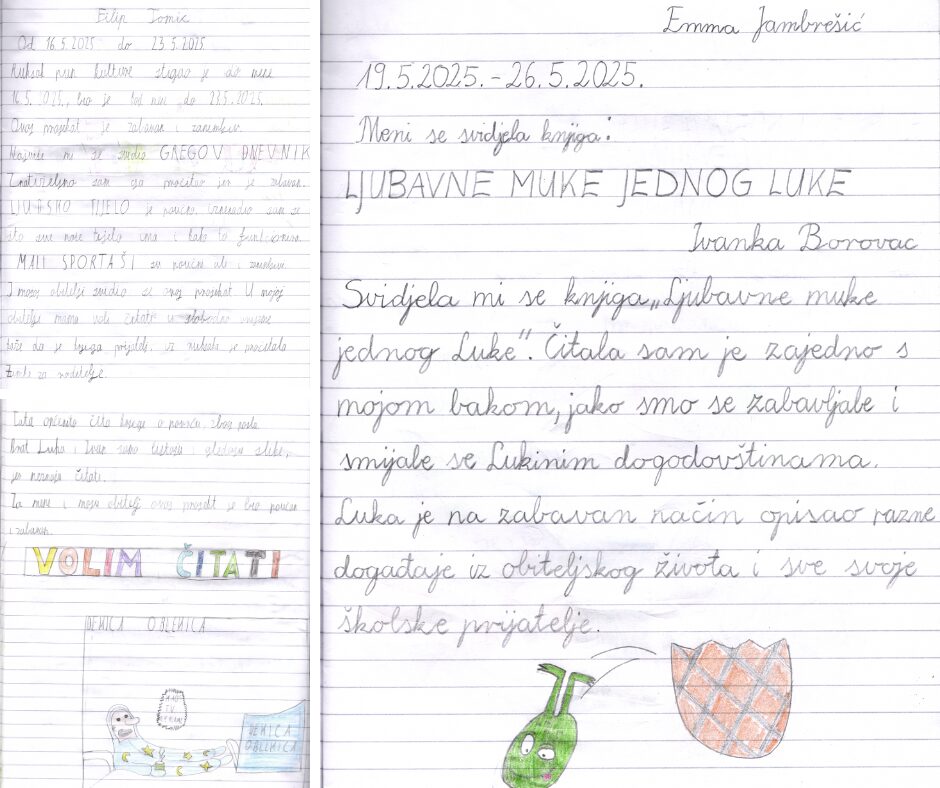 Filip Tomic
Od 16.5.2025 do 23.5.2025.
Ruksak pun kulture stigao je do mene
16.5.2025., bio je kod mene do 23.5.2025.
Ovaj projekat je zabavan i zanimljiv.
Najviše mi se svidio GREGOV DNEVNIK
Znatiželjno sam ga pročitao jer je zabavan.
LJUDSKO TIJELO je poučno. Iznenadio sam se
što sve naše tijelo ima i kako to funkcionira.
MALI SPORTAŠI su poučni ali i zanimljivi.
I mojoj obitelji svidio se ovaj projekat. U mojoj
obitelji mama voli čitati u slobodno vrijeme
kaže da je knjiga prijatelj, iz ruksaka je pročitala
za roditelje.
Tata općenito čita knjige o povrću zbog posla.
Brat Luka i Ivan samo listaju i gledaju slike,
jer neznaju čitati.
Za mene i moju obitelj ovaj projekt je bio poučan
i zabavan.
VOLIM ČITATI
DEKICA OBLENICA
TV
DEKICA
OBLENICA
Emma Jambrešić
19.5.2025.-26.5.2025.
Meni se svidjela knjiga:
LJUBAVNE MUKE JEDNOG LUKE
Ivanka Borovac
Svidjela mi se knjiga „Ljubavne muke
jednog Luke". Čitala sam je zajedno s
mojom bakom, jako smo se zabavljale i
smijale se Lukinim dogodovštinama.
Luka je na zabavan način opisao razne
događaje iz obiteljskog života i sve svoje
školske prijatelje.